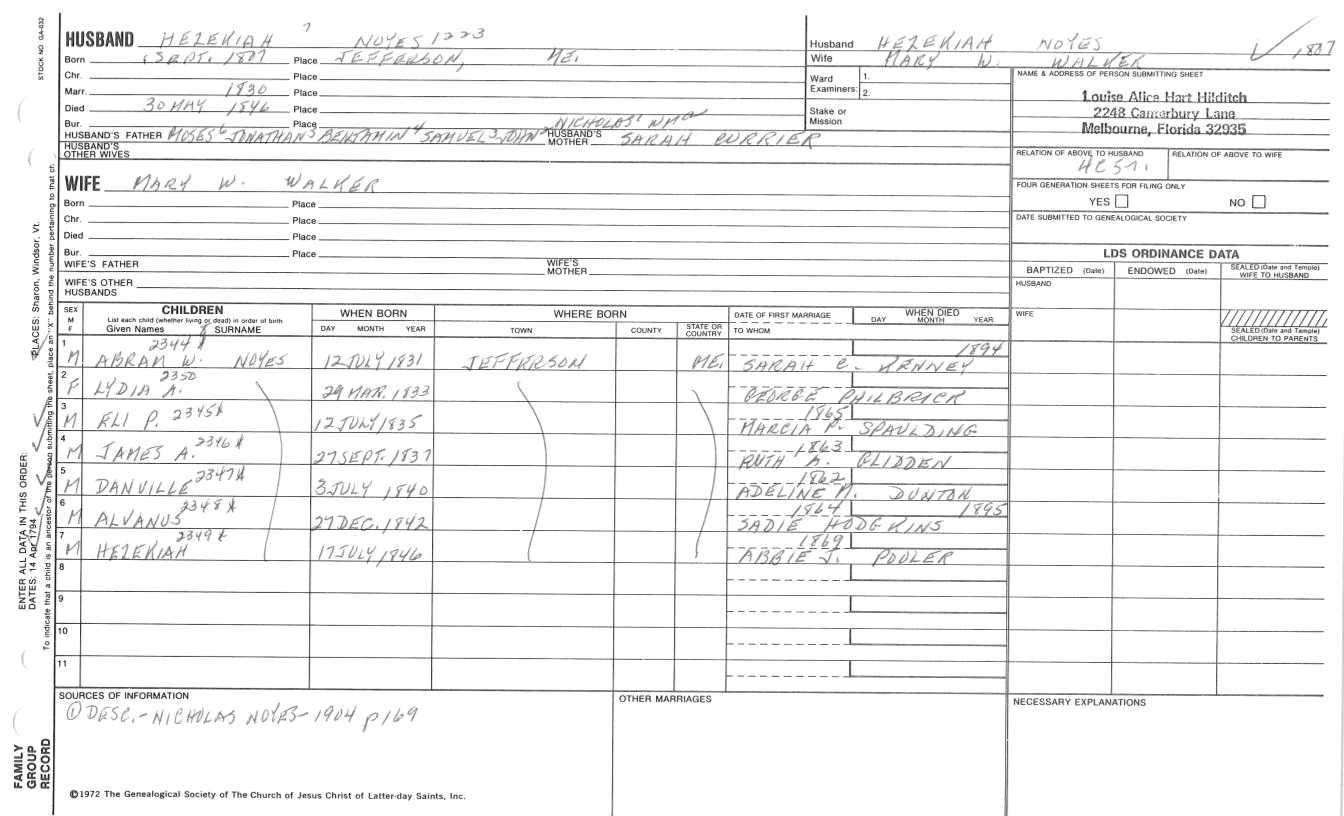 STOCK NO. GA-032
HUSBAND HEZEKIAH 7 NOYES 1223
Born SEPT. 1807 Place JEFFERSON, ME.
Chr. Place
Marr. 1830 Place
Died 30 MAY 1846 Place
Bur. Place NICHOLAS1
HUSBAND'S FATHER MOSES6 JONATHAN5 BENJAMIN4 SAMUEL3 JOHN2 HUSBAND'S MOTHER SARAH CURRIER
HUSBAND'S OTHER WIVES
Husband HEZEKIAH NOYES 1807
Wife MARY W. WALKER
Ward Examiners: 1.
2.
Stake or Mission
NAME & ADDRESS OF PERSON SUBMITTING SHEET
Louise Alice Hart Hilditch
2248 Canterbury Lane
Melbourne, Florida 32935
RELATION OF ABOVE TO HUSBAND RELATION OF ABOVE TO WIFE
4C5R.
FOUR GENERATION SHEETS FOR FILING ONLY
YES NO
DATE SUBMITTED TO GENEALOGICAL SOCIETY
WIFE MARY W. WALKER
Born Place
Chr. Place
Died Place
Bur. Place
WIFE'S FATHER WIFE'S MOTHER
WIFE'S OTHER HUSBANDS
LDS ORDINANCE DATA
BAPTIZED (Date) ENDOWED (Date) SEALED (Date and Temple) WIFE TO HUSBAND
HUSBAND
WIFE
SEALED (Date and Temple) CHILDREN TO PARENTS
SEX M F CHILDREN WHEN BORN WHERE BORN DATE OF FIRST MARRIAGE WHEN DIED
List each child (whether living or dead) in order of birth
Given Names SURNAME DAY MONTH YEAR TOWN COUNTY STATE OR COUNTRY TO WHOM DAY MONTH YEAR
1 2344 1894
M ABRAM W. NOYES 12 JULY 1831 JEFFERSON ME. SARAH C. KENNEY
2 2350
F LYDIA A. 29 MAR. 1833 GEORGE PHILBRICK
3 2345 1865
M ELI P. 12 JULY 1835 MARCIA P. SPAULDING
4 2346 1863
M JAMES A. 27 SEPT. 1837 RUTH A. GLIDDEN
5 2347 1862
M DANVILLE 3 JULY 1840 ADELINE M. DUNTON
6 2348 1864 1895
M ALVANUS 27 DEC. 1842 SADIE HODGKINS
7 2349 1869
M HEZEKIAH 17 JULY 1846 ABBIE J. POOLER
8
9
10
11
SOURCES OF INFORMATION OTHER MARRIAGES NECESSARY EXPLANATIONS
① DESC.-NICHOLAS NOYES-1904 p169
©1972 The Genealogical Society of The Church of Jesus Christ of Latter-day Saints, Inc.
ENTER ALL DATA IN THIS ORDER:
DATES: 14 Apr 1794 PLACES: Sharon, Windsor, Vt.
To indicate that a child is an ancestor of the person submitting the sheet, place an "X" behind the number pertaining to that ch.
FAMILY
GROUP
RECORD